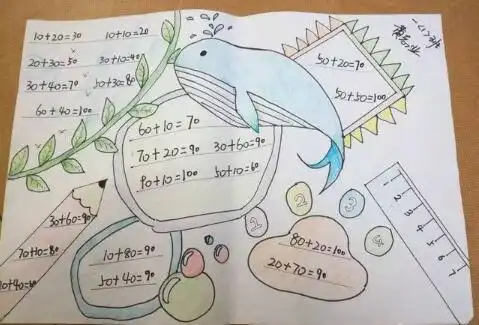 10+20=30 10+10=20
20+30=50 30+10=40
30+40=70 50+30=80
60+40=100
50+20=70
50+50=100
60+10=70
70+20=90 30+60=90
90+10=100 50+10=60
30+60=90
70+10=80
10+80=90
50+40=90
1
2
3
4
80+20=100
20+70=90
1
2
3
4
5
6
7